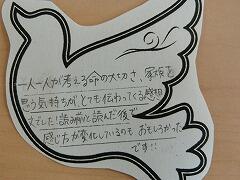 一人一人が考える命の大切さ、家族を
思う気持ちが、とても伝わってくる感想
文でした!読む前と読んだ後で
感じ方が変化しているのも おもしろかった
です!!